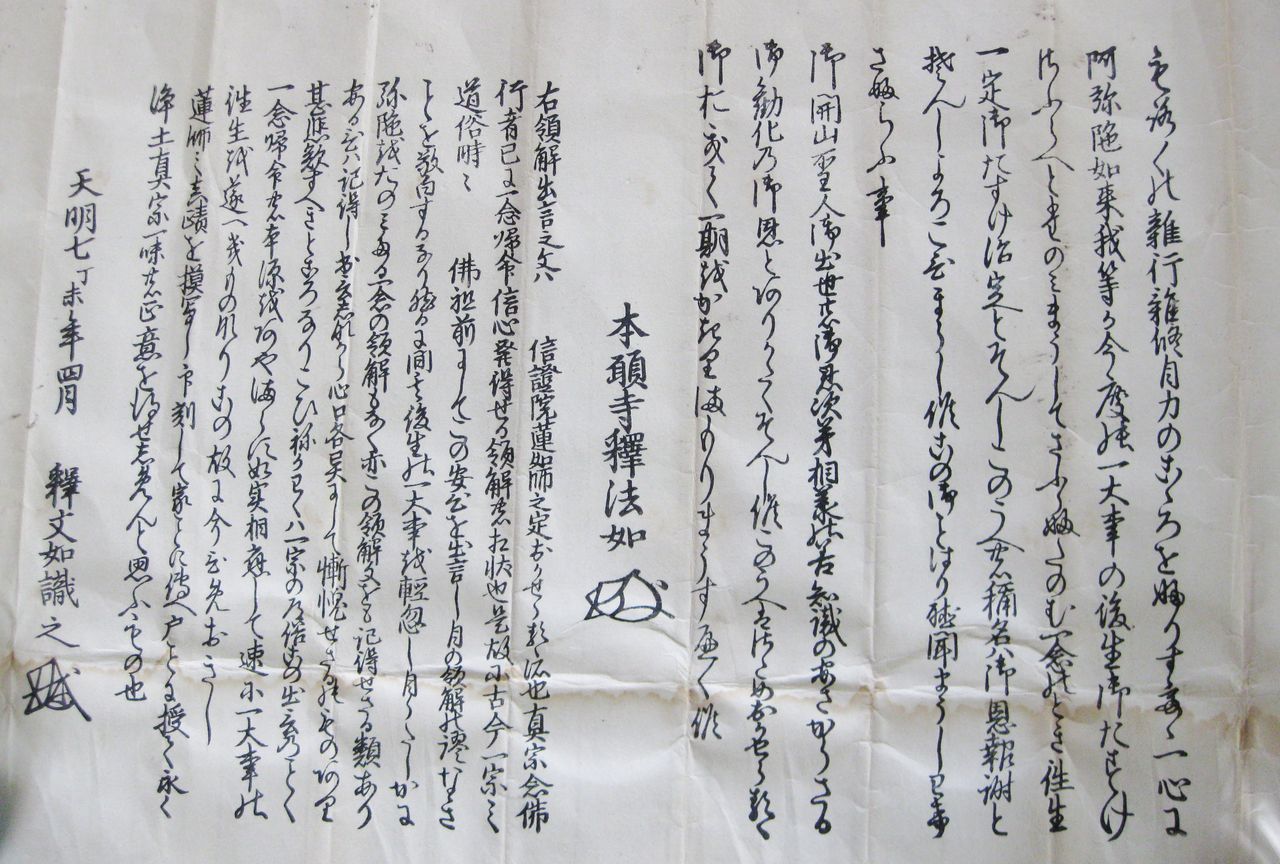 もろ〱の雜行雜修自力のこゝろをふりすてゝ一心に
阿弥陀如来我等か今度の一大事の後生御たすけ
さふらへとたのみまうしてさふらふたのむ一念のとき往生
一定御たすけ治定とそんしこのうへの稱名ハ御恩報謝と
そんしよろこひまうし候この御ことはり聴聞まうしわけ
さふらふ事
御開山聖人御出世の御恩次第相承の善知識のあさからさる
御勧化の御恩とありかたくそんし候このうへはさためおかせらるゝ
御おきて一期をかきりまもりまうすへく候
本願寺釋法如
右領解出言之文ハ 信證院蓮如師之定おかせらるゝ所也真宗念佛
行者已に一念帰命信心発得せる領解の相状也是故に古今一宗之
道俗時々 佛祖前にしてこの安心を出言し自の領解の謬なき
ことを敬白するなり
弥陀をたのミたる一念の領解もなく亦この領解文をも記得せさる類あり
あるひハ記得し出言しなから心口各異にして慚愧せさるものあり
甚悲歎すへきところなりこひねかはくハ一宗の道俗この出言のことく
一念帰命の本源をあやまらす如実相應して速に一大事の
往生を遂へきものなりこの故に今
蓮師之真蹟を摸写し印刻して家ことに傳へ戸ことに授て永く
浄土真宗一味の正意を得せしめんと思ふもの也
天明七丁未年四月 釋文如識之